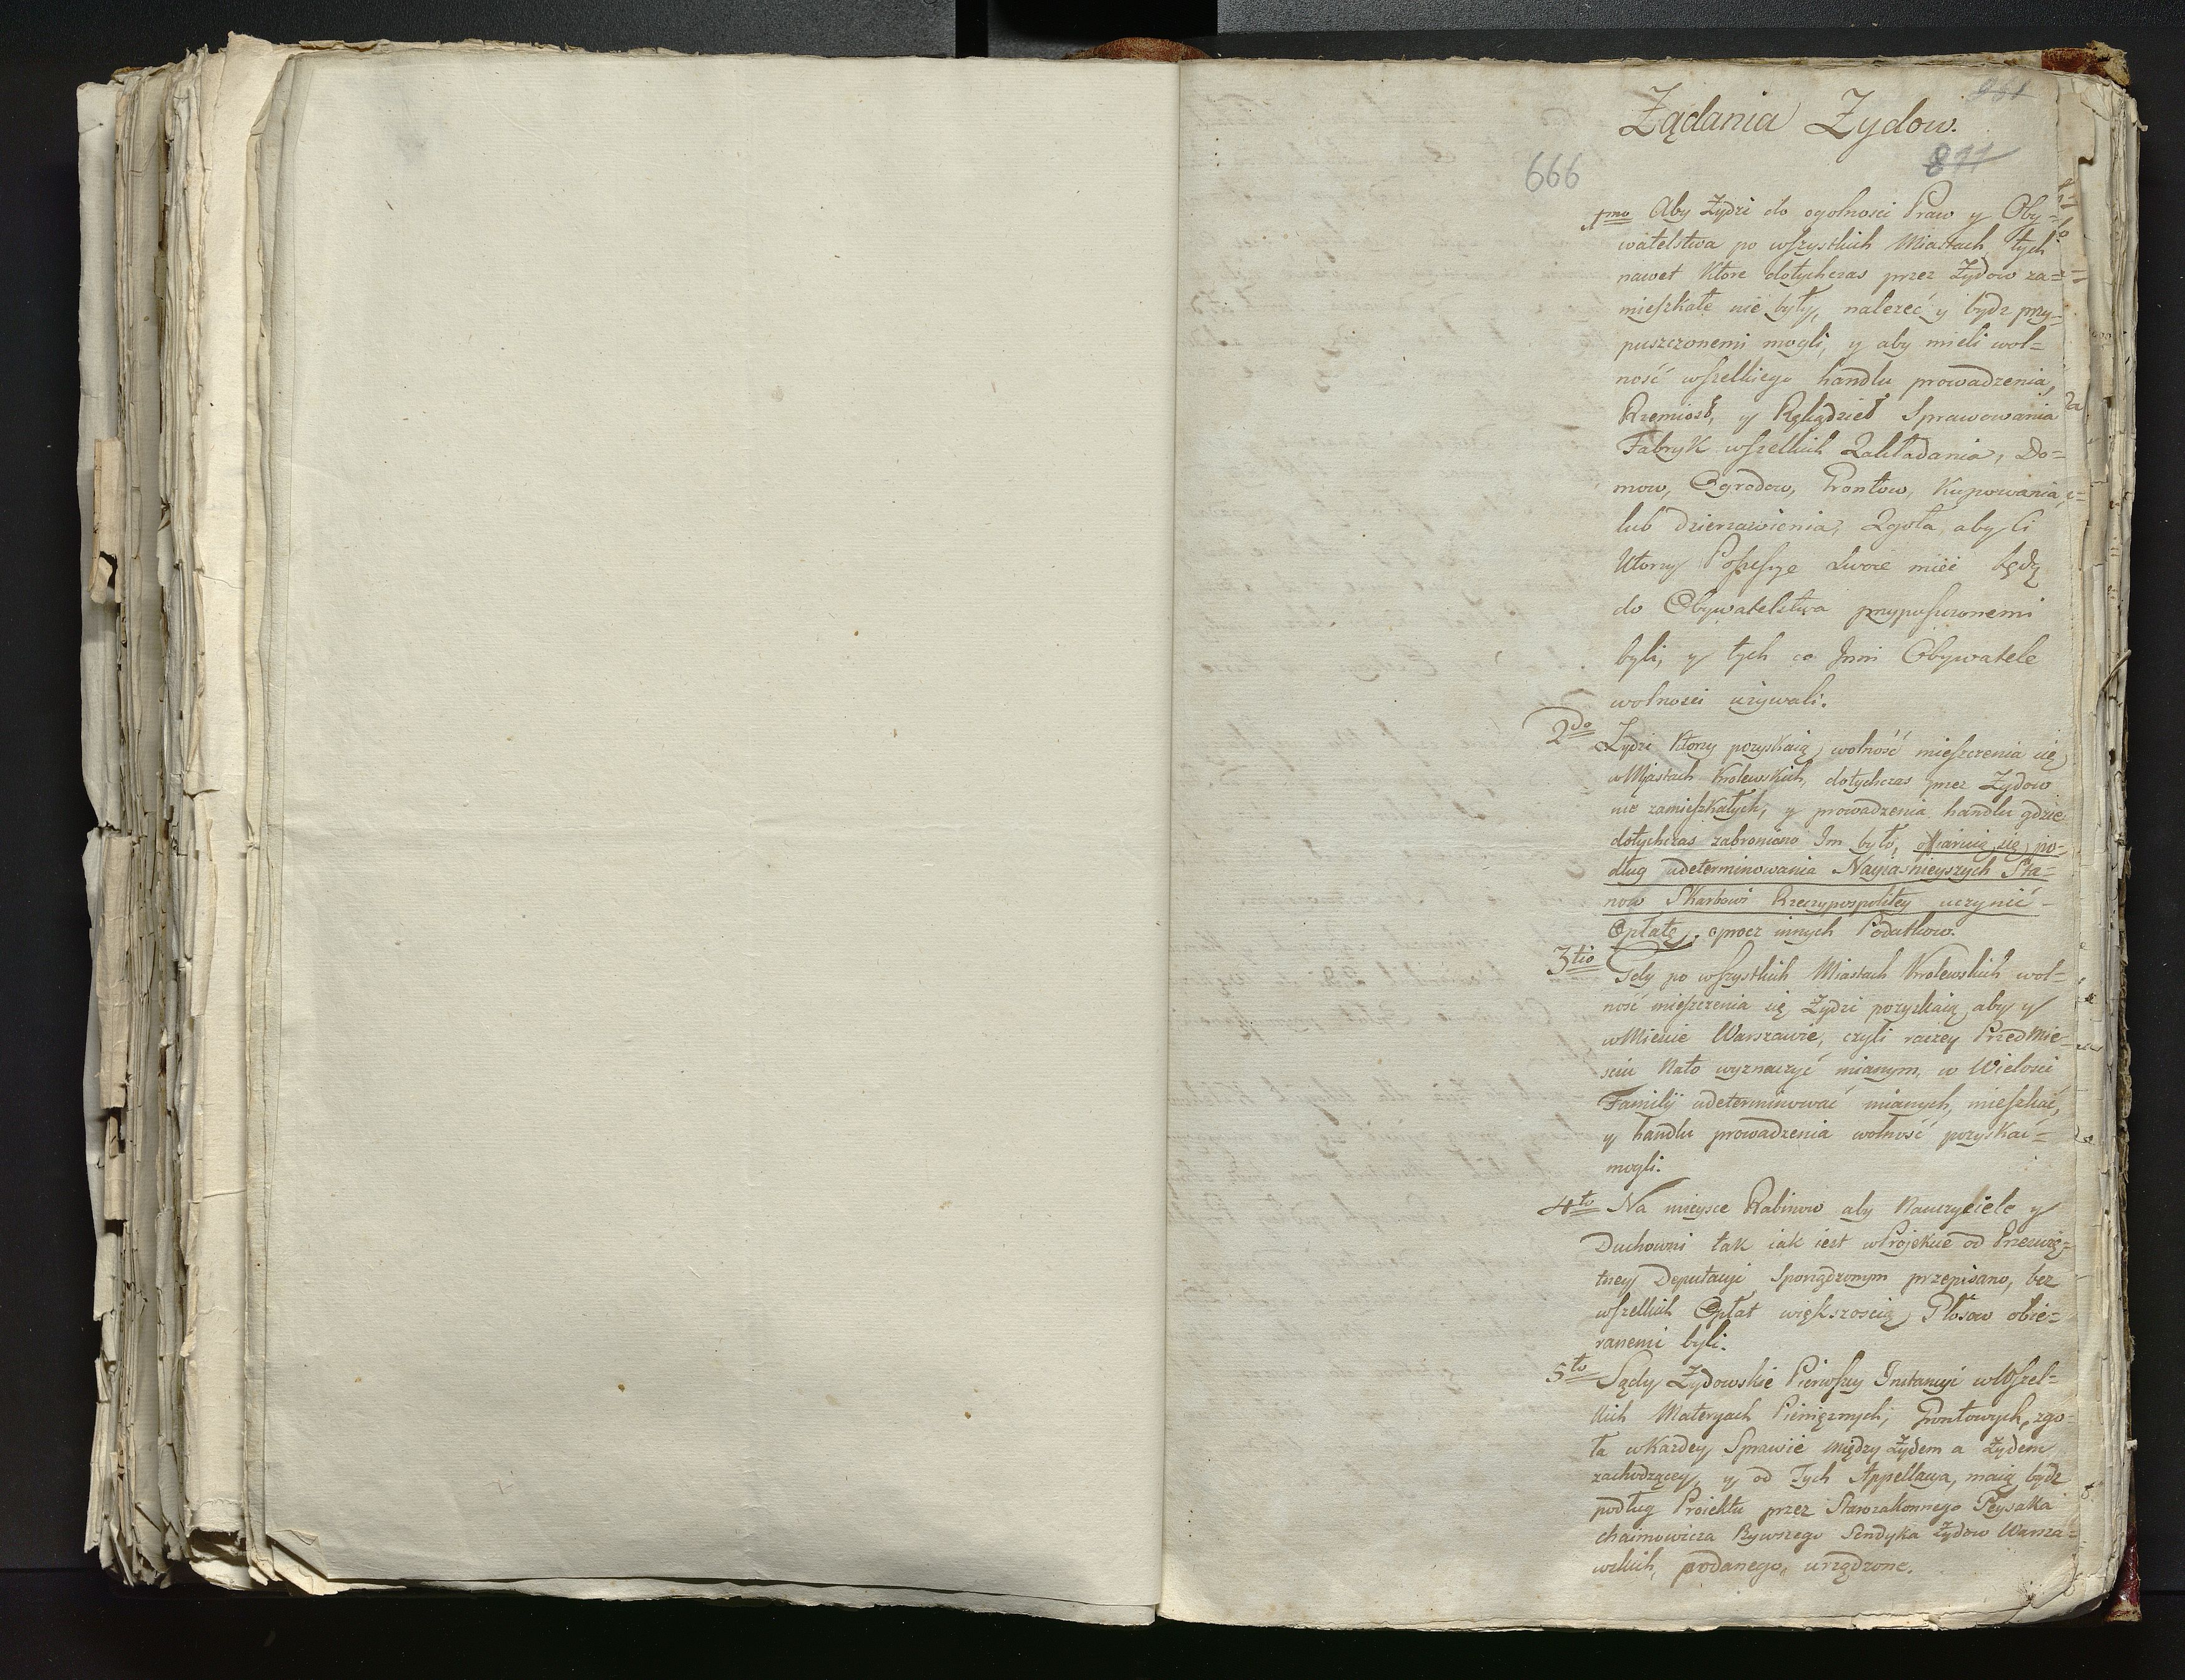 961
Żądania Zydow.
811
666
1mo Aby Zydzi do ogolnosci Praw y Oby=
watelstwa po wszystkich Miastach tych
nawet Ktore dotychczas przez Zydow za=
mieszkałe nie były, nalezeć y bydz przy=
puszczonemi mogli, y aby mieli wol=
ność wszelkiego handlu prowadzenia,
Rzemiosł, y Rękądzieł Sprawowania
Fabryk wszelkich Zakładania, Do=
mow, Ogrodow, Grontow, Kupowania,
lub dzierzawienia, Zgoła, aby Ci
Ktorzy Possessye Swoie mieć będą
do Obywatelstwa przypuszczonemi
byli, y tych co Inni Obywatele
wolnosci uzywali.
2do Zydzi Ktorzy pozyskaią wolność mieszczenia się
w Miastach Krolewskich, dotychczas przez Zydow
nie zamieszkałych, y prowadzenia handlu gdzie
dotychczas zabroniono Im było, offiaruią się po=
dług udeterminowania Nayiasnieyszych Sta=
now Skarbowi Rzeczypospolitey uczynić
Opłatę, oprocz innych Podatkow.
3tio Gdy po wszystkich Miastach Krolewskich wol=
ność mieszczenia się Zydzi pozyskaią, aby y
w Miescie Warszawie, czyli raczey PrzedMie=
sciu Nato wyznaczyć mianym, w Wielosci
Familij udeterminować mianych, mieszkać,
y handlu prowadzenia wolność pozyskać=
mogli.
4to Na mieysce Rabinow aby Nauczyciele y
Duchowni tak iak iest w Projekcie od Przeswię=
tney Deputacyi Sporządzonym przepisano, bez
wszelkich Opłat większoscią Głosow obie=
ranemi byli.
5to Sądy Zydowskie Pierwszey Instancyi w Wszel=
kich Materyach Pieniężnych, Grontowych, zgo=
ła w Kazdey Sprawie między Zydem a Zydem
zachodzącey, y od Tych Appellacya, maią bydz
podług Proiektu przez Starozakonnego Peysaka
Chaimowicza Bywszego Sendyka Zydow Warsza=
wskich, podanego, urządzone.